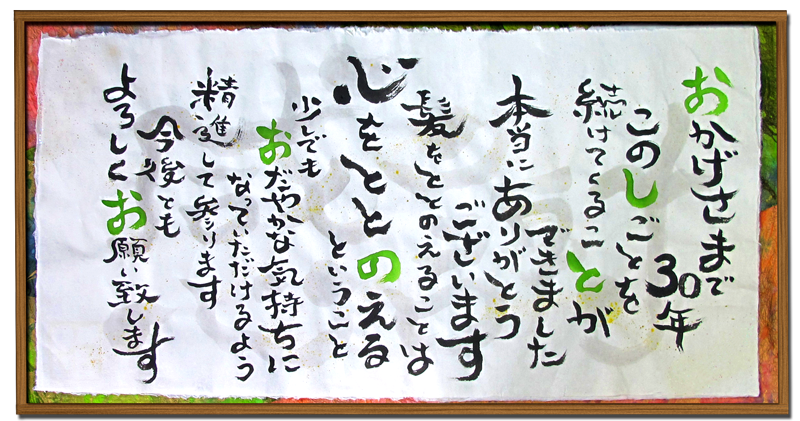 おかげさまで
30年
このしごとを
続けてくることが
できました
本当にありがとう
ございます
髪をととのえることは
心をととのえる
ということ
少しでも
おだやかな気持ちに
なっていただけるよう
精進して参ります
今後とも
よろしくお願い致します